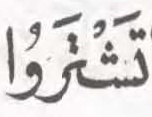 تَشْتَرُوا